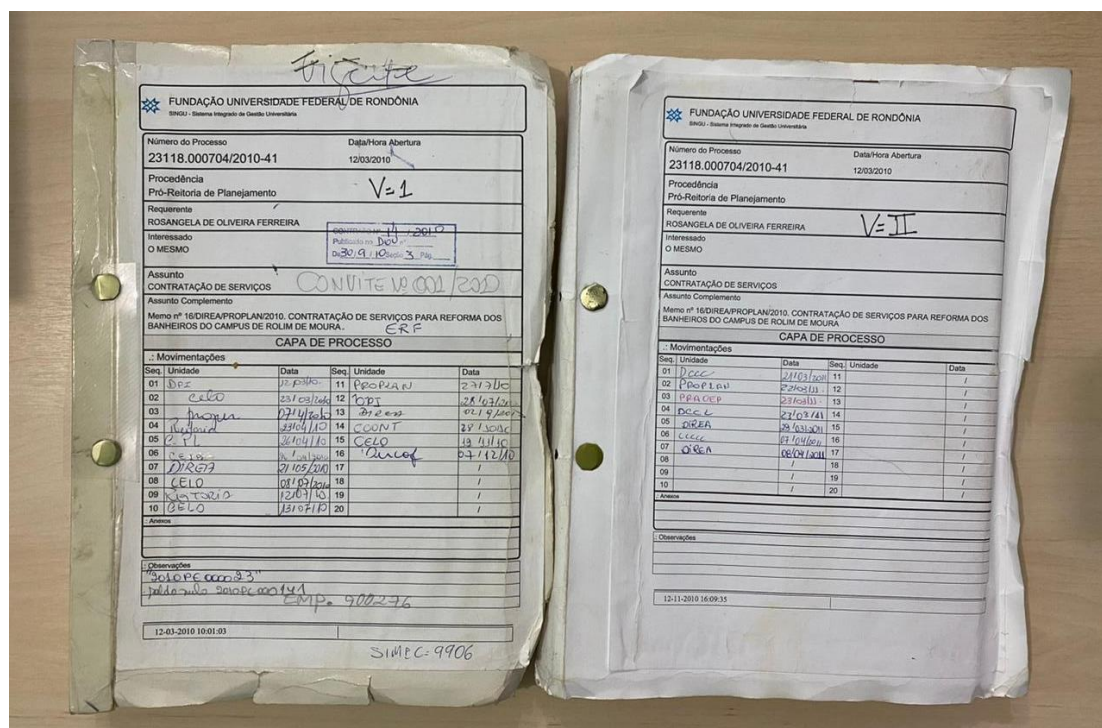 Vigente
FUNDAÇÃO UNIVERSIDADE FEDERAL DE RONDÔNIA
SINGU - Sistema Integrado de Gestão Universitária
Número do Processo Data/Hora Abertura
23118.000704/2010-41 12/03/2010
Procedência
Pró-Reitoria de Planejamento V=1
Requerente
ROSANGELA DE OLIVEIRA FERREIRA
Interessado
O MESMO
14 / 2010
Publicado no DOU
De 30/9/10 Seção 3 Pág.
Assunto
CONTRATAÇÃO DE SERVIÇOS CONVITE Nº 001/2010
Assunto Complemento
Memo nº 16/DIREA/PROPLAN/2010. CONTRATAÇÃO DE SERVIÇOS PARA REFORMA DOS
BANHEIROS DO CAMPUS DE ROLIM DE MOURA. ERF
CAPA DE PROCESSO
.: Movimentações
Seq. Unidade Data Seq. Unidade Data
01 11 PROPLAN 27/7/10
02 celo 23/03/2010 12
03 07/4/2010 13 Direa
04 Reitoria 23/04/10 14 COONT
05 CPL 26/04/10 15 CELO 19/11/10
06 16 07/12/10
07 DIREA 21/05/2010 17 /
08 CELO 08/07/2010 18 /
09 REITORIA 12/07/10 19 /
10 CELO 13/07/10 20 /
.: Anexos
.: Observações
"2010PE000023"
EMP. 900276
12-03-2010 10:01:03
SIMEC: 9906
FUNDAÇÃO UNIVERSIDADE FEDERAL DE RONDÔNIA
SINGU - Sistema Integrado de Gestão Universitária
Número do Processo Data/Hora Abertura
23118.000704/2010-41 12/03/2010
Procedência
Pró-Reitoria de Planejamento
Requerente
ROSANGELA DE OLIVEIRA FERREIRA V=II
Interessado
O MESMO
Assunto
CONTRATAÇÃO DE SERVIÇOS
Assunto Complemento
Memo nº 16/DIREA/PROPLAN/2010. CONTRATAÇÃO DE SERVIÇOS PARA REFORMA DOS
BANHEIROS DO CAMPUS DE ROLIM DE MOURA
CAPA DE PROCESSO
.: Movimentações
Seq. Unidade Data Seq. Unidade Data
01 DCCC 21/03/2011 11 /
02 PROPLAN 22/03/11 12 /
03 23/03/11 13 /
04 DCCL 23/03/11 14 /
05 DIREA 28/03/2011 15 /
06 CCCC 07/04/2011 16 /
07 DIREA 08/04/2011 17 /
08 / 18 /
09 19 /
10 / 20 /
.: Anexos
.: Observações
12-11-2010 16:09:35